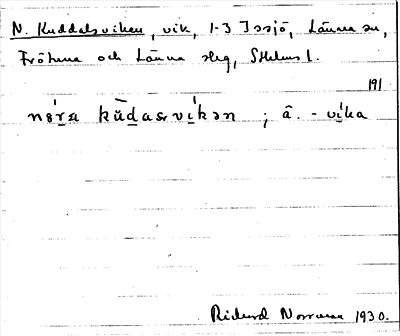 N. Kuddalsviken, vik, 1-3 Issjö, Länna sn,
Fröhuna och Länna slg, Sthlms l.
191
vı̣kən ; â. - vı̣ka
Richard Norrman 1930.